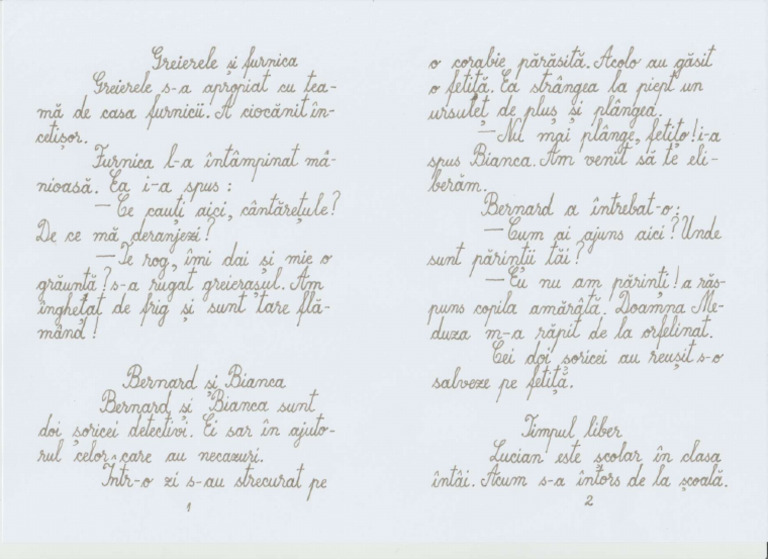 Greierele și furnica
Greierele s-a apropiat cu tea-
mă de casa furnicii. A ciocănit în-
cetișor.
Furnica l-a întâmpinat mâ-
nioasă. Ea i-a spus:
— Ce cauți aici, cântărețule?
De ce mă deranjezi?
— Te rog, îmi dai și mie o
grăunță? s-a rugat greierașul. Am
înghețat de frig și sunt tare flă-
mând!
Bernard și Bianca
Bernard și Bianca sunt
doi șoricei detectivi. Ei sar în ajuto-
rul celor care au necazuri.
Într-o zi s-au strecurat pe
1
o corabie părăsită. Acolo au găsit
o fetiță. Ea strângea la piept un
ursuleț de pluș și plângea.
— Nu mai plânge, fetițo! i-a
spus Bianca. Am venit să te eli-
berăm.
Bernard a întrebat-o:
— Cum ai ajuns aici? Unde
sunt părinții tăi?
— Eu nu am părinți! a răs-
puns copila amărâtă. Doamna Me-
duza m-a răpit de la orfelinat.
Cei doi șoricei au reușit s-o
salveze pe fetiță.
Timpul liber
Lucian este școlar în clasa
întâi. Acum s-a întors de la școală.
2